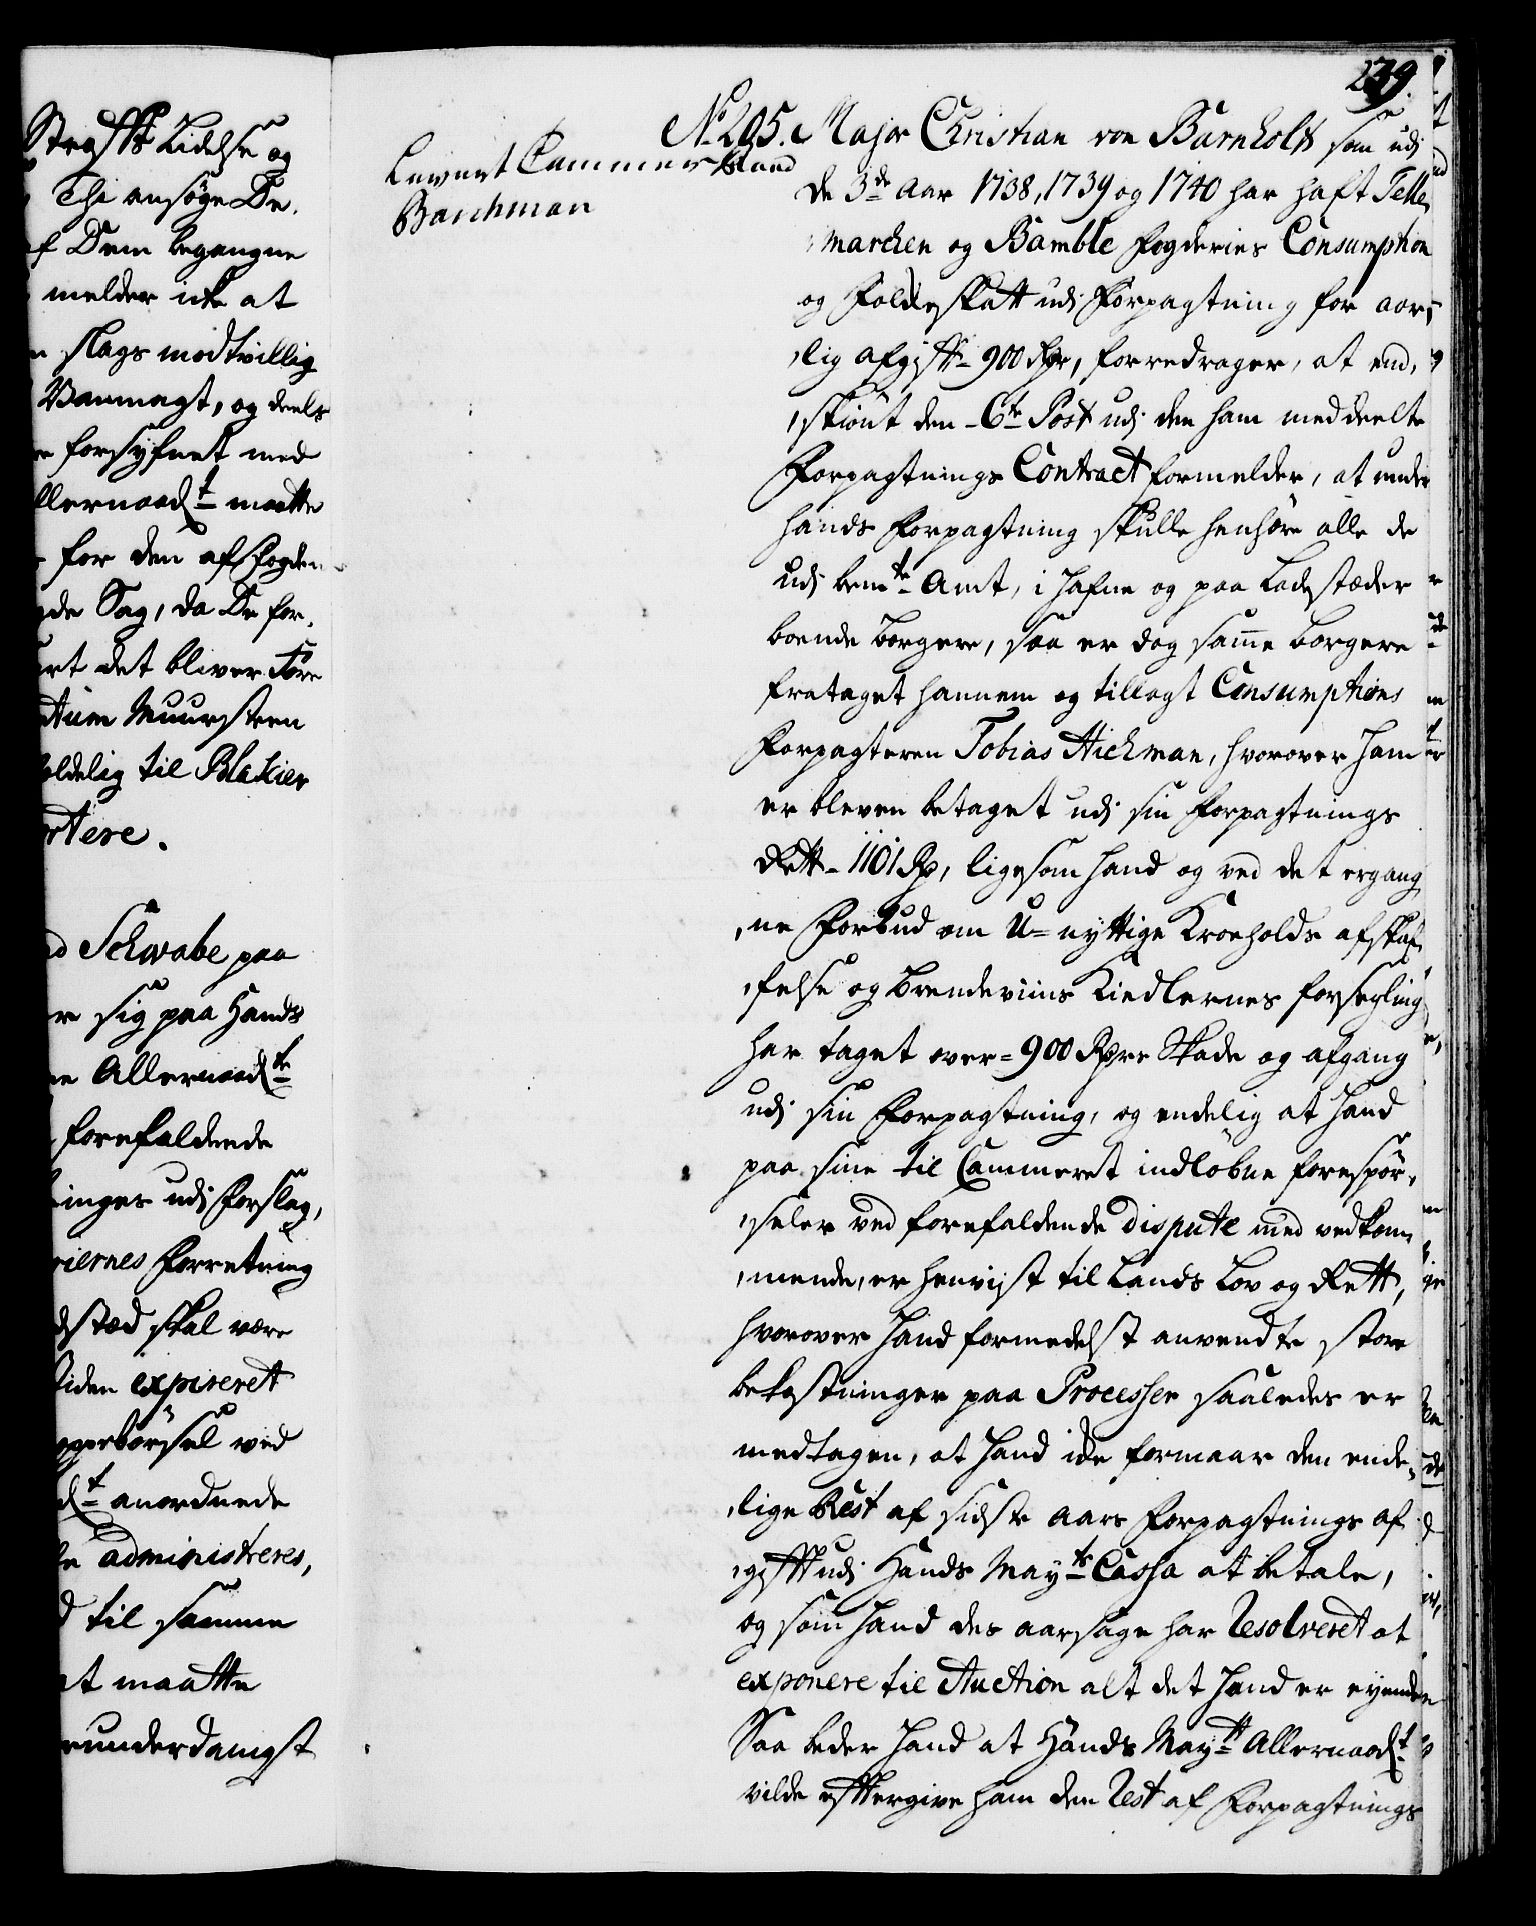 Straffs Lidelse og
Thi ansøge De,
af Dem begangne
melder icke at
slags modtvillig
Vanmagt, og deels
forsyfnet med
llernaadt maatte
for den af Fogden
de Sag, da De for,
det bliver Före
Muursteen
oldelig til Blakier
rtere.
Schwabe paa
sig paa Hands
Allernaadte
forefaldende
inges udj Forslag,
iernes Forretning
stæd skal være
tiden expireret
pperbörsel ved
dt anordnede
administreres,
til samme
at maatte
runderdanigst
239.
Levert Cammer Raad
Barchman
No 205. Major Christian von Barnholt som udj
de 3de Aar 1738, 1739 og 1740 har haft Telle,
,marchen og Bamble Fogderies Consumption
og Folkeskatt udj Forpagtning for aar,
,lig afgift 900 Rdr, forredrager, at end,
,skiönt den 6te Post udj den ham meddeelte
Forpagtnings Contract formelder, at under
hands Forpagtning skulle henhöre alle de
udj bemte Amt, i Hafne og paa Ladestæder
boende borgere, saa er dog samme borgere
frataget hannem og tillagt Consumptions
Forpagteren Tobias Hichman, hvorover ham
er bleven betaget udj sin Forpagtnings
Rett 1101 Rd, ligesom hand og ved det ergang
,ne Forbud om U=nyttige Kroeholds afskaf,
,felse og Brendeviins Kiedlernes forsegling
har taget over 900 Rdrs Skade og afgang
udj sin Forpagtning, og endelig at hand
paa sine til Cammeret indlöbne forespör,
,seler ved forefaldende dispute med vedkom,
,mende, er henvist til Lands Lov og Rett,
hvorover hand formedelst anvendte store
bekostninger paa Processer saaledes er
medtagen, at hand icke formaar den ende,
,lige Rest af sidste Aars Forpagtnings af
,gifft udj Hands Mayts Cassa at betale,
og som hand des aarsage har Resolveret at
exponere til Auction alt det hand er eyende
Saa beder hand at Hands Maytt Allernaadt
vilde efftergive ham den Rest af Forpagtnings